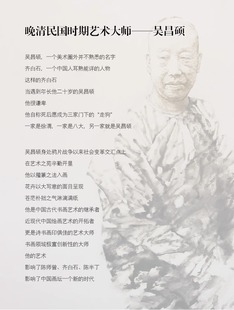 晚清民国时期艺术大师——吴昌硕
吴昌硕，一个美术圈外并不熟悉的名字
齐白石，一个中国人耳熟能详的人物
这样的齐白石
当遇到年长他二十岁的吴昌硕
他很谦卑
他自称死后愿成为三家门下的“走狗”
一家是徐渭，一家是八大，另一家就是吴昌硕
吴昌硕身处鸦片战争以来社会变革交汇点上
在艺术之荒辛勤开垦
他以隆篆之法入画
花卉以大写意的面目呈现
苍茫朴拙之气淋漓满纸
他是中国古代书画艺术的继承者
近现代中国绘画艺术的开拓者
更是诗书画印俱佳的艺术大师
书画领域极富创新性的大师
他的艺术
影响了陈师曾、齐白石、陈半丁
影响了中国画坛一个新的时代